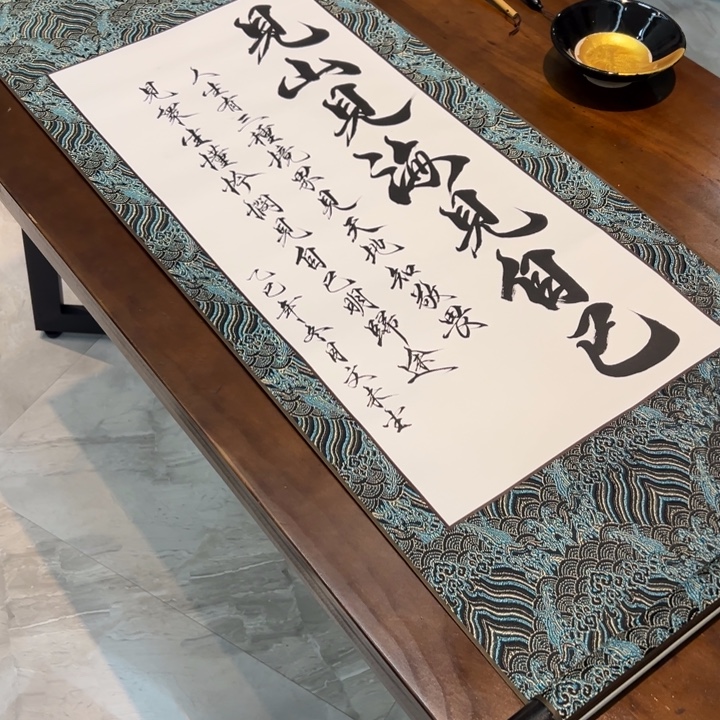 見山見海見自己
人生有三種境界見天地知敬畏
見眾生懂怜憫見自己明歸途
乙巳年冬月文未书